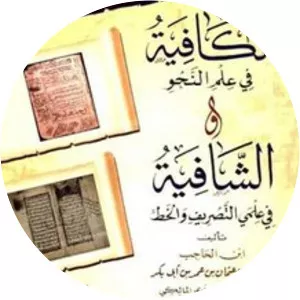 كافية
في علم النحو
و
الشافية
في علمي التصريف والخط
تأليف
ابن الحاجب
عثمان بن عمر بن أبي بكر
المالكي